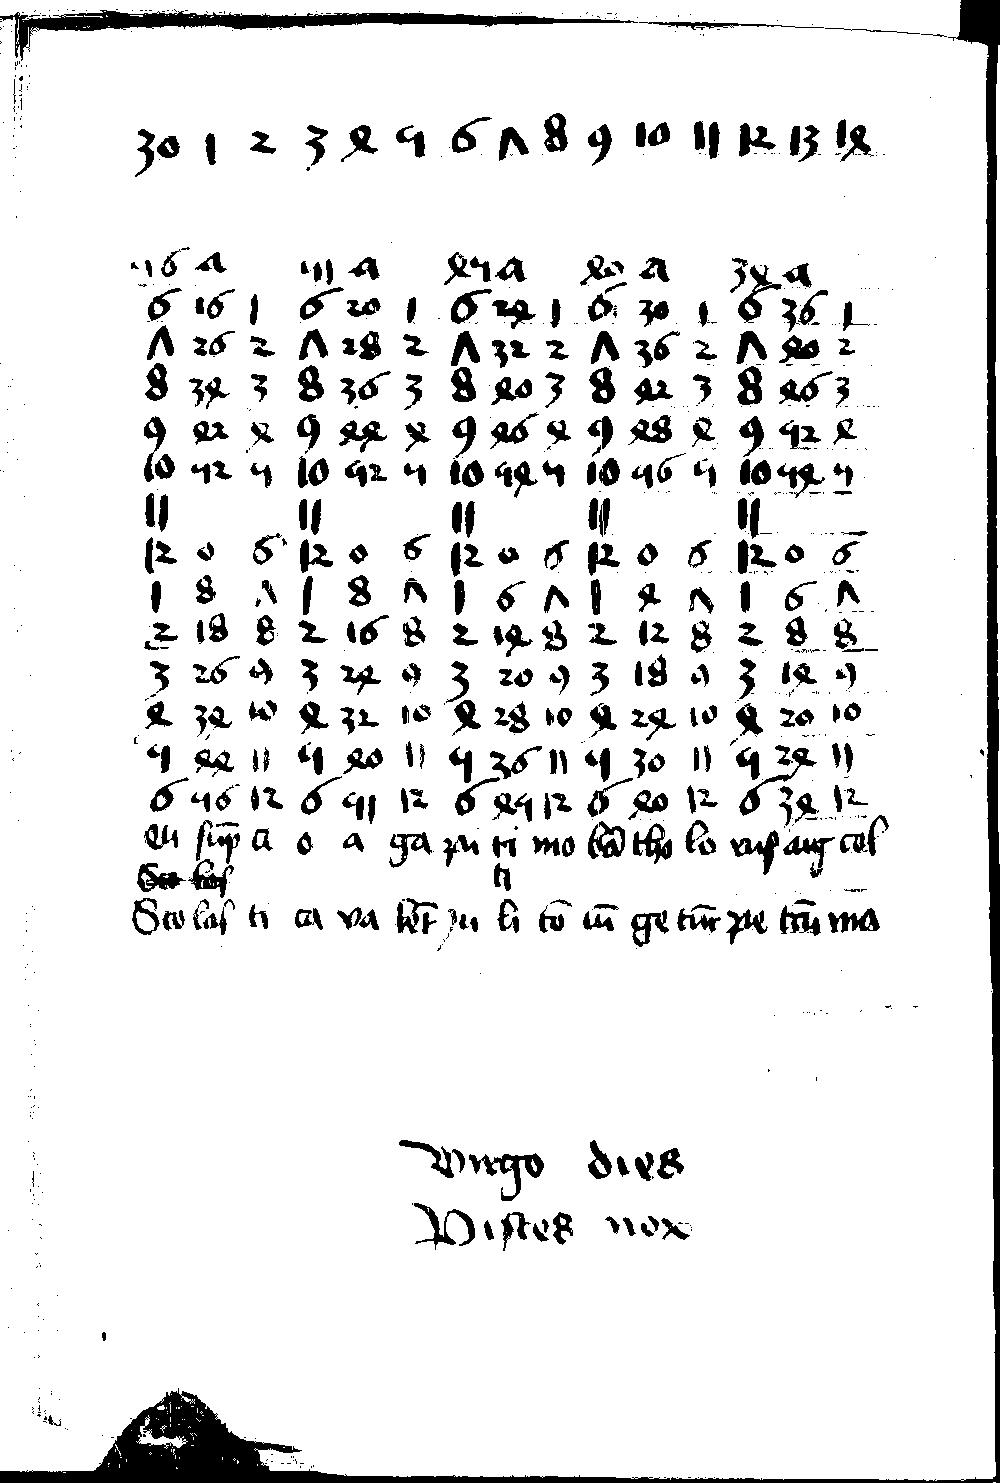 30 1 2 3 4 5 6 7 8 9 10 11 12 13 14
56 a 511 a 45 a 40 a 34 a
6 16 1 6 20 1 6 24 1 6 30 1 6 36 1
7 26 2 7 28 2 7 32 2 7 36 2 7 40 2
8 34 3 8 36 3 8 40 3 8 42 3 8 46 3
9 42 4 9 44 4 9 46 4 9 48 4 9 52 4
10 52 5 10 52 5 10 54 5 10 56 5 10 54 5
11 11 11 11 11
12 0 6 12 0 6 12 0 6 12 0 6 12 0 6
1 8 7 1 8 7 1 6 7 1 4 7 1 6 7
2 18 8 2 16 8 2 14 8 2 12 8 2 8 8
3 26 9 3 24 9 3 20 9 3 18 9 3 14 9
4 34 10 4 32 10 4 28 10 4 24 10 4 20 10
5 44 11 5 40 11 5 36 11 5 30 11 5 24 11
6 56 12 6 511 12 6 45 12 6 40 12 6 34 12
eu sup̄ a o a ga pu ti mo bā tho lo rus aug col
Sco las ti
Sco las ti ca va let̄ ju li to᷑ cū ge tūr pe trū ma
Virgo dies
Pisces nox